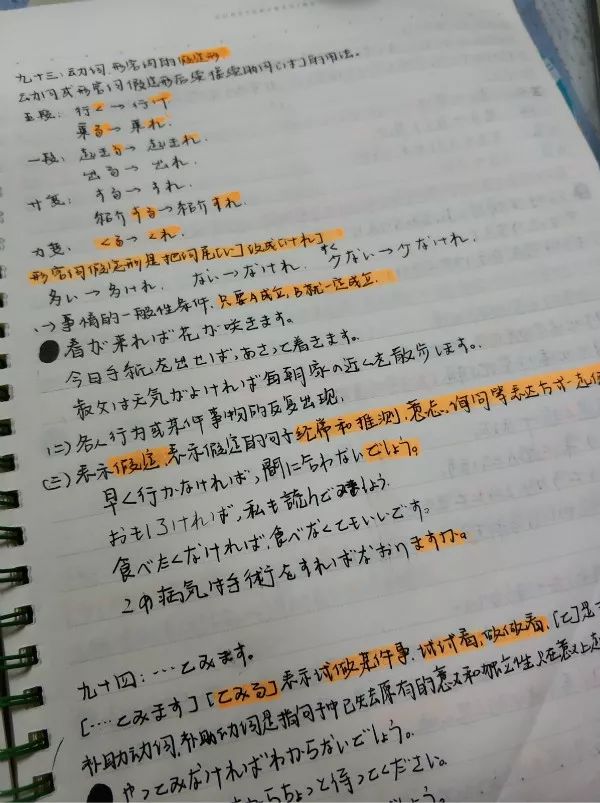 九十三：动词、形容词的假定形
动词或形容词假定形后续接续助词[ば]的用法。
五段：行く→行け
乗る→乗れ.
一段：起きる→起きれ.
出る→出れ.
サ变：する→すれ.
紹介する→紹介すれ.
カ变：くる→くれ.
形容词假定形是把词尾[い]改成[けれ]
多い→多けれ. ない→なけれ. 少ない→少なけれ.
すく
(一)事情的一般性条件.只要A成立,B就一定成立.
春が来れば花が咲きます。
今日手紙を出せば,あさって着きます。
叔父は天気がよければ毎朝家の近くを散歩します。
(二)名人行为或某件事物的反复出现.
(三)表示假定.表示假定的句子经常和推测、意志、询问等表达方式一起
早く行かなければ,間に合わないでしょう。
おもしろければ,私も読んでみましょう.
食べたくなければ,食べなくてもいいです。
この病気は手術をすればなおりますか。
九十四：…てみます。
[…てみます][てみる]表示试做某件事.试试看,做做看.[て]是
补助动词.补助动词是指句子中已失去原有的意义和独立性,只在意义上起
やってみなければわからないでしょう。
からちょっと待ってください。